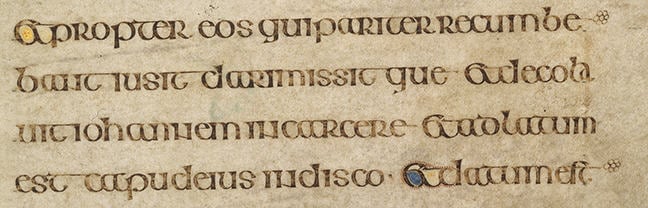 Et propter eos qui pariter recumbe
bant iusit dari missit que et decolla
uit iohannem in carcere et adlatum
est caput eius in disco · et datum est